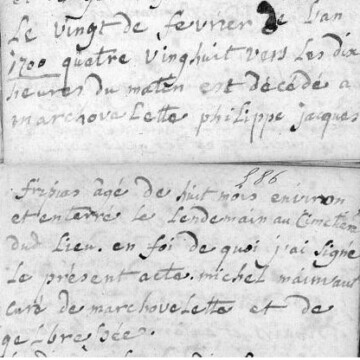 Le vingt de fevrier de l'an
1700 quatre vinghuit vers les dix
heures du maten est décédé a
marchovelette philippe jacques
586
âgé de huit mois environ
et enterré le lendemain au Cimetiere
dud. Lieu. en foi de quoi j'ai signé
le present acte. michel
curé de marchovelette et de
gelbressée.